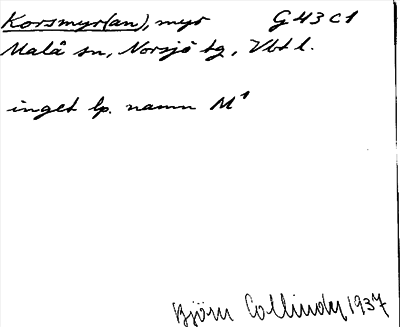 Korsmyr(an), myr G 43 C1
Malå sn, Norsjö tg, Vbt l.
inget lp. namn M¹
Björn Collinder 1937